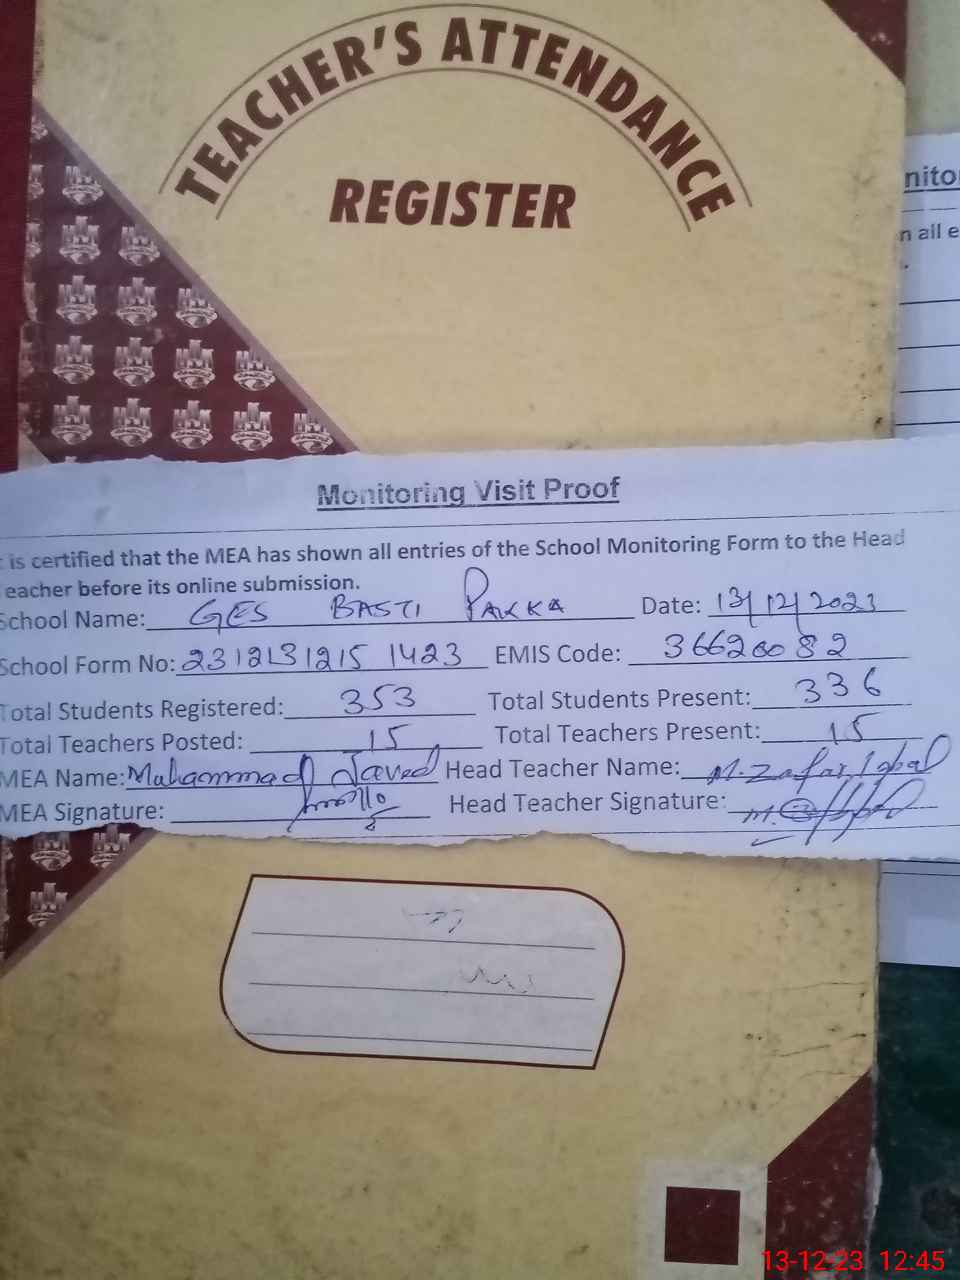 TEACHER'S ATTENDANCE
REGISTER
nito
n all e
Monitoring Visit Proof
is certified that the MEA has shown all entries of the School Monitoring Form to the Head
eacher before its online submission.
School Name: GES BASTI PAKKA Date: 13/12/2023
School Form No: 2312131215 1423 EMIS Code: 36620082
Total Students Registered: 353 Total Students Present: 336
Total Teachers Posted: 15 Total Teachers Present: 15
MEA Name: Muhammad Javed Head Teacher Name: M. Zafar Iqbal
MEA Signature: Head Teacher Signature:
13-12-23 12:45